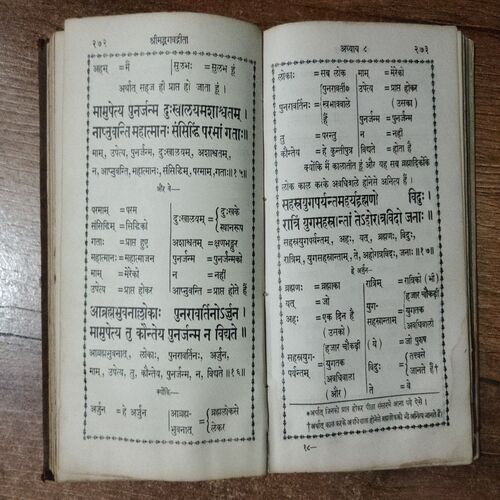 २७२ श्रीमद्भगवद्गीता
अहम् = मैं सुलभः = सुलभ हूं
अर्थात् सहज ही प्राप्त हो जाता हूं ।
मामुपेत्य पुनर्जन्म दुःखालयमशाश्वतम् ।
नाप्नुवन्ति महात्मानः संसिद्धिं परमां गताः॥
माम्, उपेत्य, पुनर्जन्म, दुःखालयम्, अशाश्वतम्,
न, आप्नुवन्ति, महात्मानः, संसिद्धिम्, परमाम्, गताः॥१५॥
और वे—
परमाम् = परम
संसिद्धिम् = सिद्धिको
गताः = प्राप्त हुए
महात्मानः = महात्माजन
माम् = मेरेको
उपेत्य = प्राप्त होकर
दुःखालयम् = दुःखके स्थानरूप
अशाश्वतम् = क्षणभङ्गुर
पुनर्जन्म = पुनर्जन्मको
न = नहीं
आप्नुवन्ति = प्राप्त होते हैं
आब्रह्मभुवनाल्लोकाः पुनरावर्तिनोऽर्जुन ।
मामुपेत्य तु कौन्तेय पुनर्जन्म न विद्यते ॥
आब्रह्मभुवनात्, लोकाः, पुनरावर्तिनः, अर्जुन,
माम्, उपेत्य, तु, कौन्तेय, पुनर्जन्म, न, विद्यते ॥१६॥
क्योंकि—
अर्जुन = हे अर्जुन
आब्रह्म-
भुवनात् = ब्रह्मलोकसे लेकर
अध्याय ८ २७३
लोकाः = सब लोक
पुनरावर्तिनः = पुनरावर्ती स्वभाववाले हैं
तु = परन्तु
कौन्तेय = हे कुन्तीपुत्र
माम् = मेरेको
उपेत्य = प्राप्त होकर (उसका)
पुनर्जन्म = पुनर्जन्म
न = नहीं
विद्यते = होता है
क्योंकि मैं कालातीत हूं और यह सब ब्रह्मादिकोंके
लोक काल करके अवधिवाले होनेसे अनित्य हैं ।
सहस्रयुगपर्यन्तमहर्यद्ब्रह्मणो विदुः ।
रात्रिं युगसहस्रान्तां तेऽहोरात्रविदो जनाः ॥
सहस्रयुगपर्यन्तम्, अहः, यत्, ब्रह्मणः, विदुः,
रात्रिम्, युगसहस्रान्ताम्, ते, अहोरात्रविदः, जनाः ॥१७॥
हे अर्जुन—
ब्रह्मणः = ब्रह्माका
यत् = जो
अहः = एक दिन है (उसको)
सहस्रयुग-
पर्यन्तम् = हजार चौकड़ी युगतक अवधिवाला (और)
रात्रिम् = रात्रिको (भी)
युग-
सहस्रान्ताम् = हजार चौकड़ी युगतक अवधिवाली (जो पुरुष)
विदुः = तत्त्वसे जानते हैं†
ते = वे
*अर्थात् जिनको प्राप्त होकर पीछा संसारमें आना पड़े ऐसे ।
†अर्थात् काल करके अवधिवाला होनेसे ब्रह्मलोकको भी अनित्य जानते हैं।
१८—